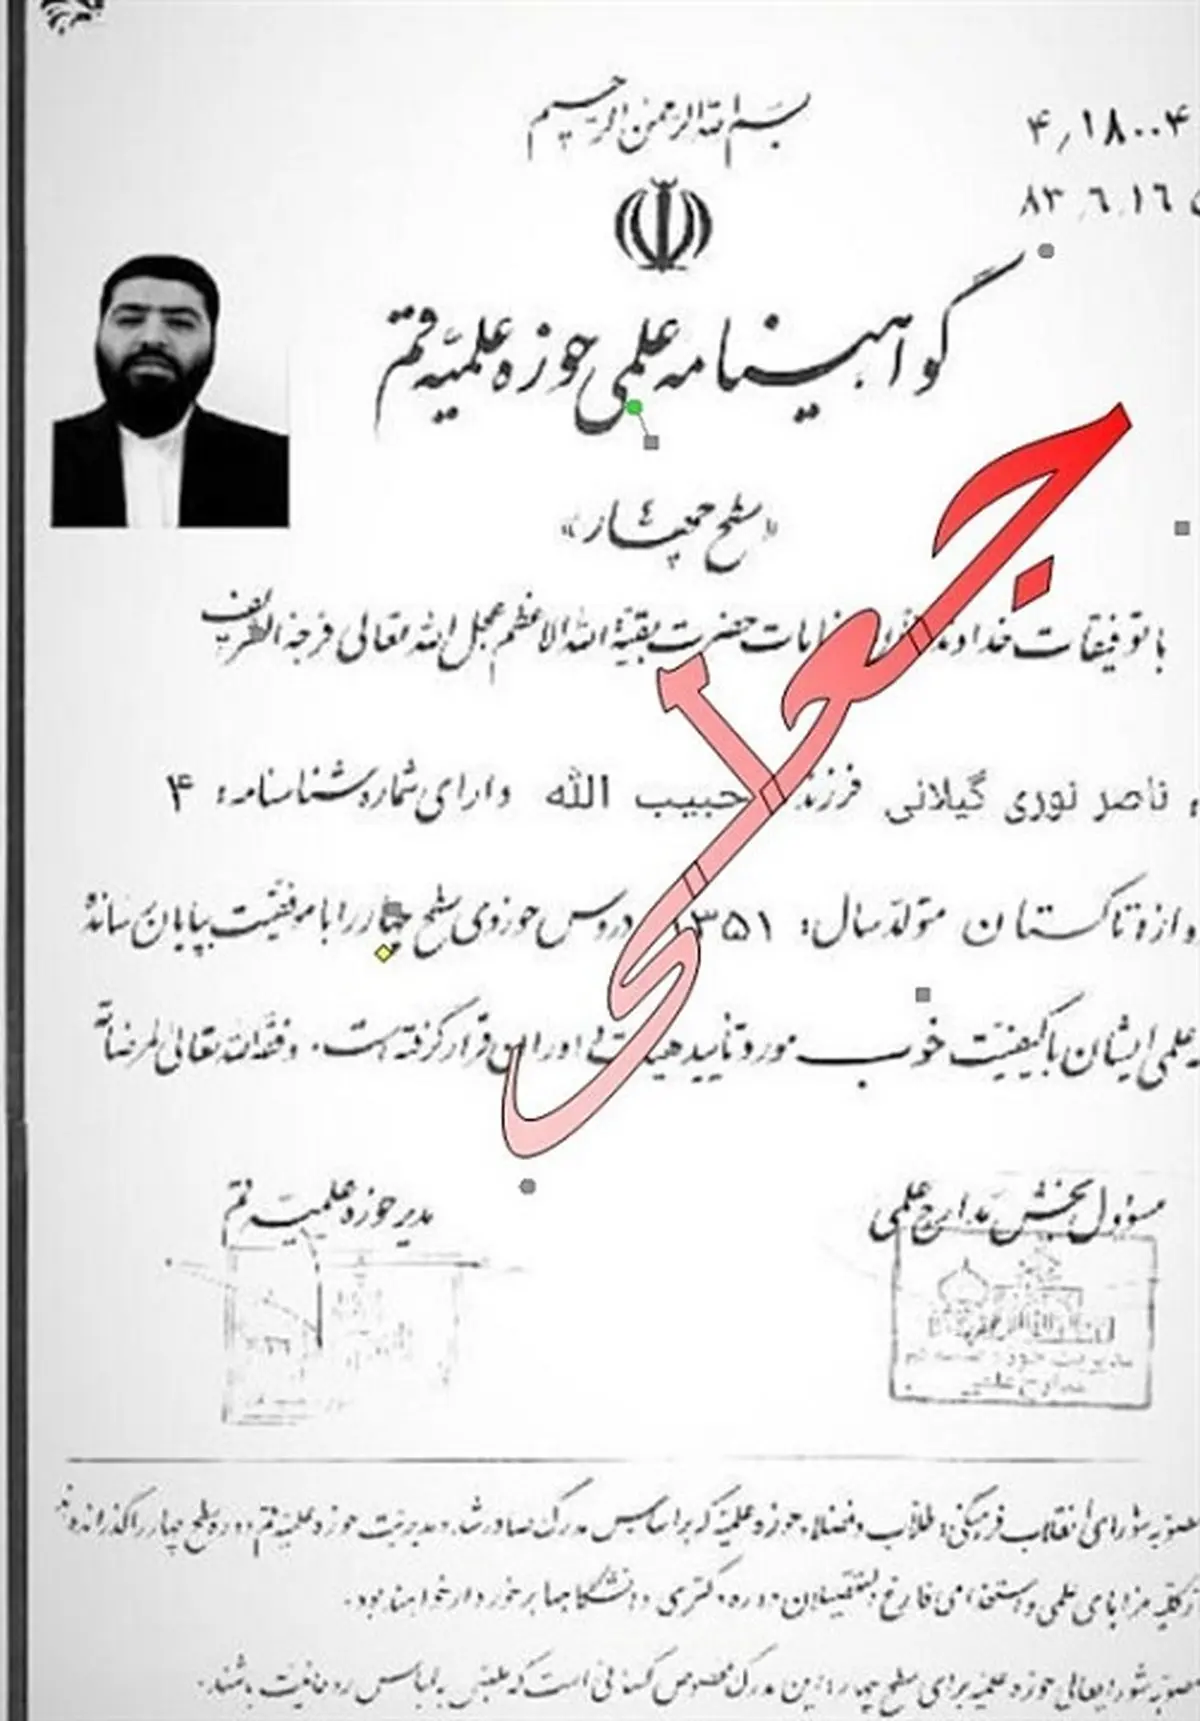 بسم الله الرحمن الرحیم
۴/۱۸۰۰۴
۸۳/۶/۱۶
گواهینامه علمی حوزه علمیه قم
«سطح چهار»
با توفیقات خداوند حضرت بقیة الله الاعظم عجل الله تعالی فرجه الشریف
ناصر نوری گیلانی فرزند حبیب الله دارای شماره شناسنامه: ۴
تاکستان متولد سال: ۱۳۵۱ دروس حوزوی سطح چهار را با موفقیت بپایان رسانده
علمی ایشان با کیفیت خوب مورد تأیید هیئت قرار گرفته است. وفقه الله تعالی لمرضاته
جعلی
مسؤول بخش مدارج علمی
مدیر حوزه علمیه قم
مدارج علمی
شورای انقلاب فرهنگی: طلاب و فضلاء حوزه علمیه که بر اساس مدرک صادر شده مدیریت حوزه علمیه قم دوره سطح چهار را گذرانده
از کلیه مزایای علمی و استخدامی فارغ التحصیلان دوره دکتری دانشگاهها برخوردار خواهند بود.
شورایعالی حوزه علمیه برای سطح چهار این مدرک مخصوص کسانی است که ملبس به لباس روحانیت باشند.